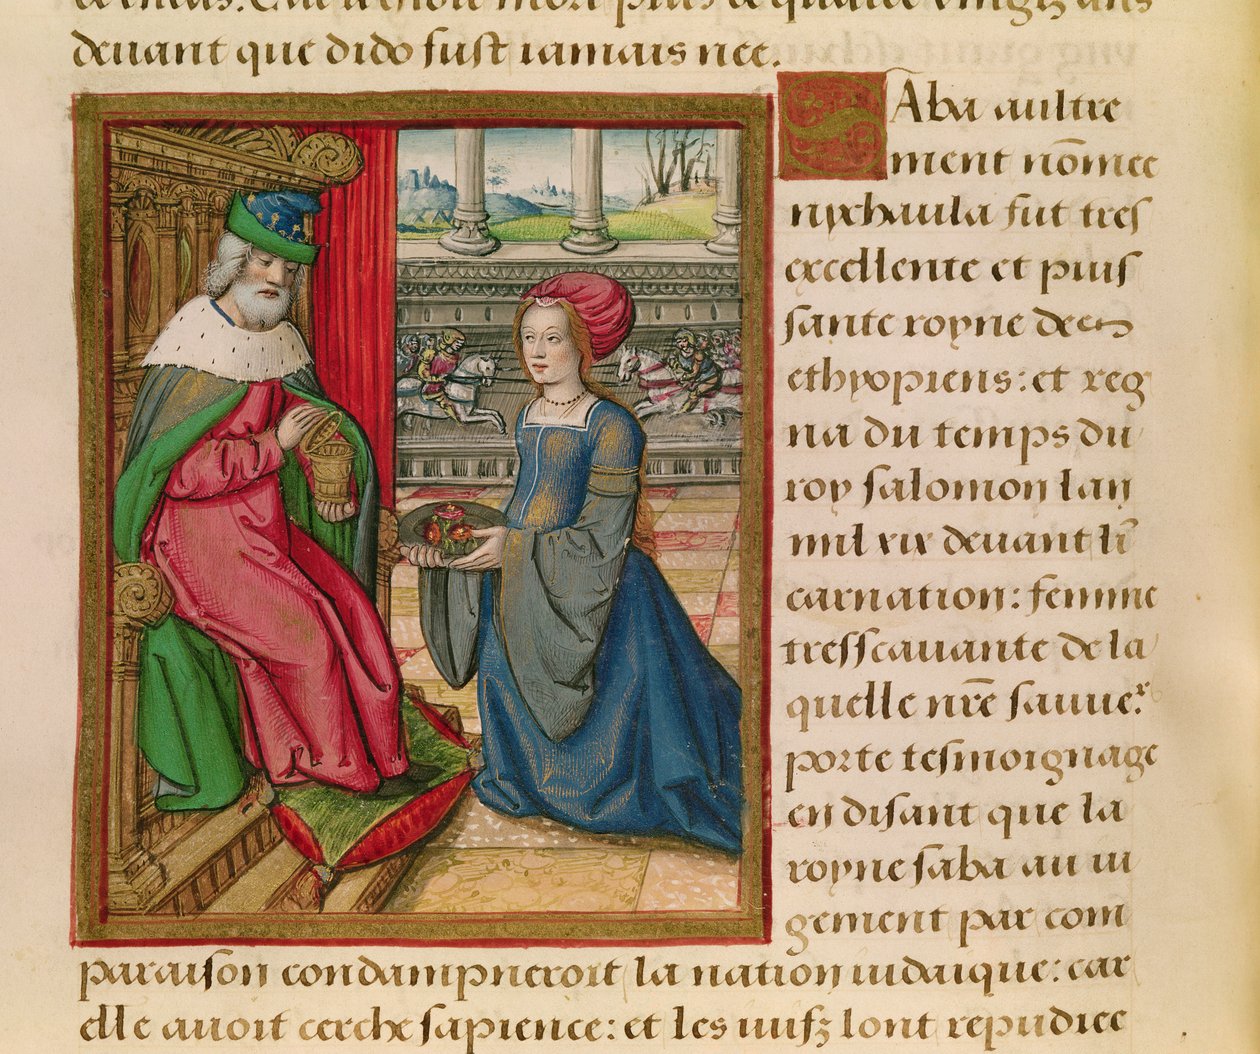 deuant que dido fust iamais nee.
Saba aultre
ment nōmee
nixhaula fut tres
excellente et puis
sante royne des
ethyopiens: et reg
na du temps du
roy salomon lan
mil xix deuant li
carnation: femme
tresscauante de la
quelle nr̄e sauueʳ
porte tesmoignage
en disant que la
royne saba au iu
gement par com
paraison condampneroit la nation iudaique: car
elle auoit cerche sapience: et les iuifz lont repudiee